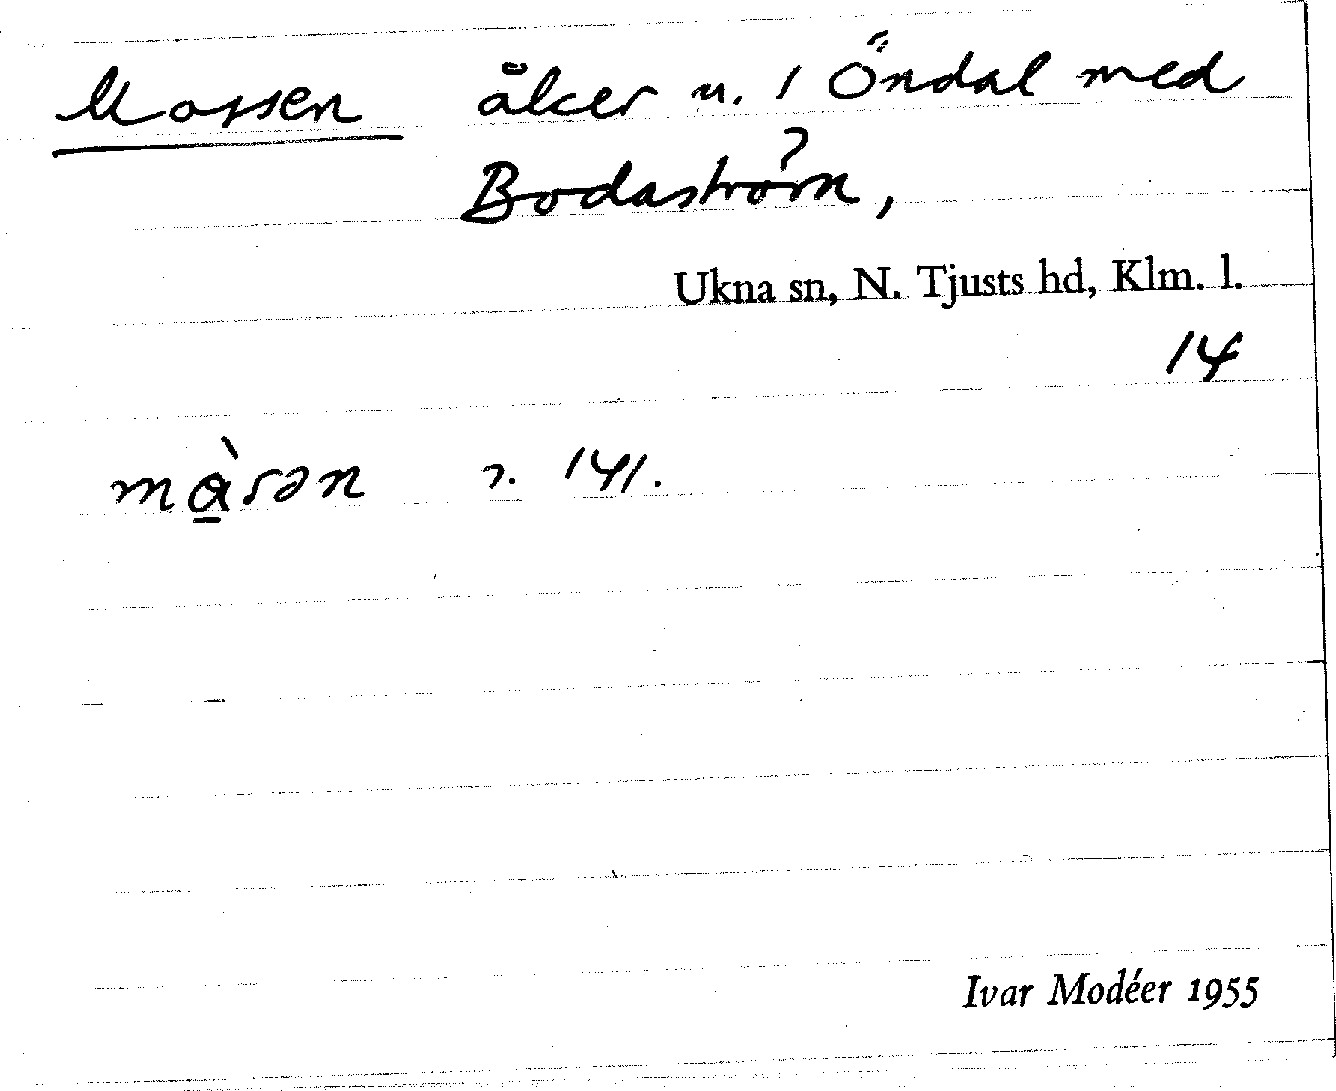 Mossen åker u. 1 Öndal med
Bodaström,
Ukna sn, N. Tjusts hd, Klm. l.
14
màsən r. 141.
Ivar Modéer 1955